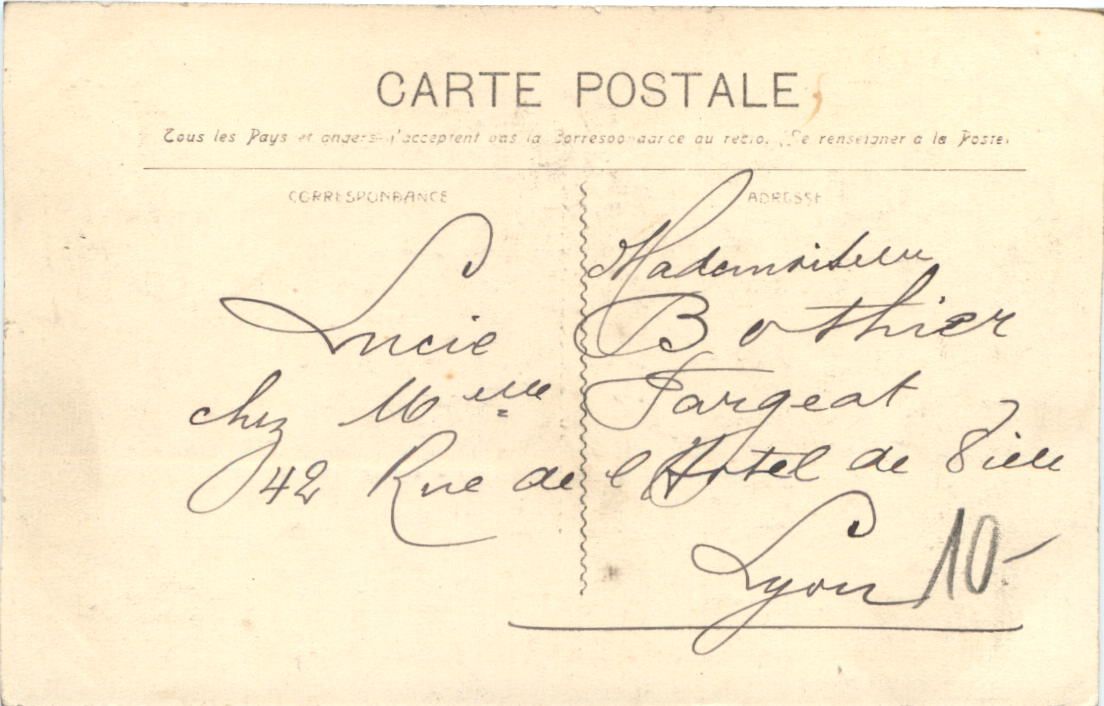 CARTE POSTALE
Tous les Pays étrangers n'acceptent pas la Correspondance au recto. (Se renseigner à la Poste)
CORRESPONDANCE
ADRESSE
Mademoiselle
Lucie Bothier
chez Melle Fargeat
42 Rue de l Hotel de Ville
Lyon
10-